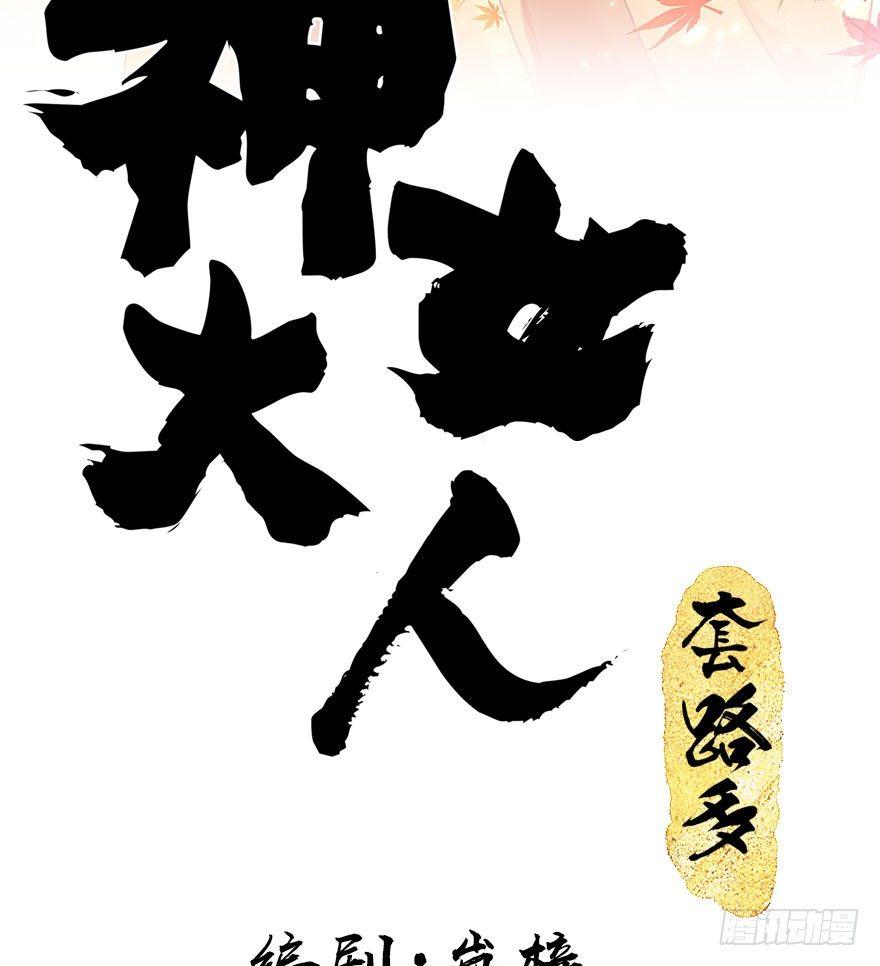 神女
大人
套路多
编剧·岚樟
腾讯动漫